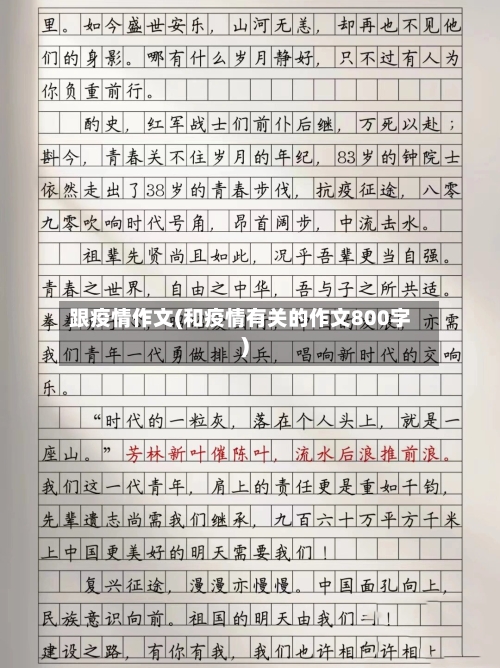 里。如今盛世安乐，山河无恙，却再也不见他
们的身影。哪有什么岁月静好，只不过有人为
你负重前行。
酌史，红军战士们前仆后继，万死以赴；
斟今，青春关不住岁月的年纪，83岁的钟院士
依然走出了38岁的青春步伐，抗疫征途，八零
九零吹响时代号角，昂首阔步，中流击水。
祖辈先贤尚且如此，况乎吾辈更当自强。
青春之世界，自由之中华，吾与子之所共适。
跟疫情作文(和疫情有关的作文800字
)
拳拳
亦需
我们青年一代勇做排头兵，唱响新时代的交响
乐。
“时代的一粒灰，落在个人头上，就是一
座山。”芳林新叶催陈叶，流水后浪推前浪。
我们这一代青年，肩上的责任更是重如千钧，
先辈遗志尚需我们继承，九百六十万平方千米
上中国更美好的明天需要我们！
复兴征途，漫漫亦慢慢。中国面孔向上，
民族意识向前。祖国的明天由我们！
建设之路，有你有我，我们也许相向许相